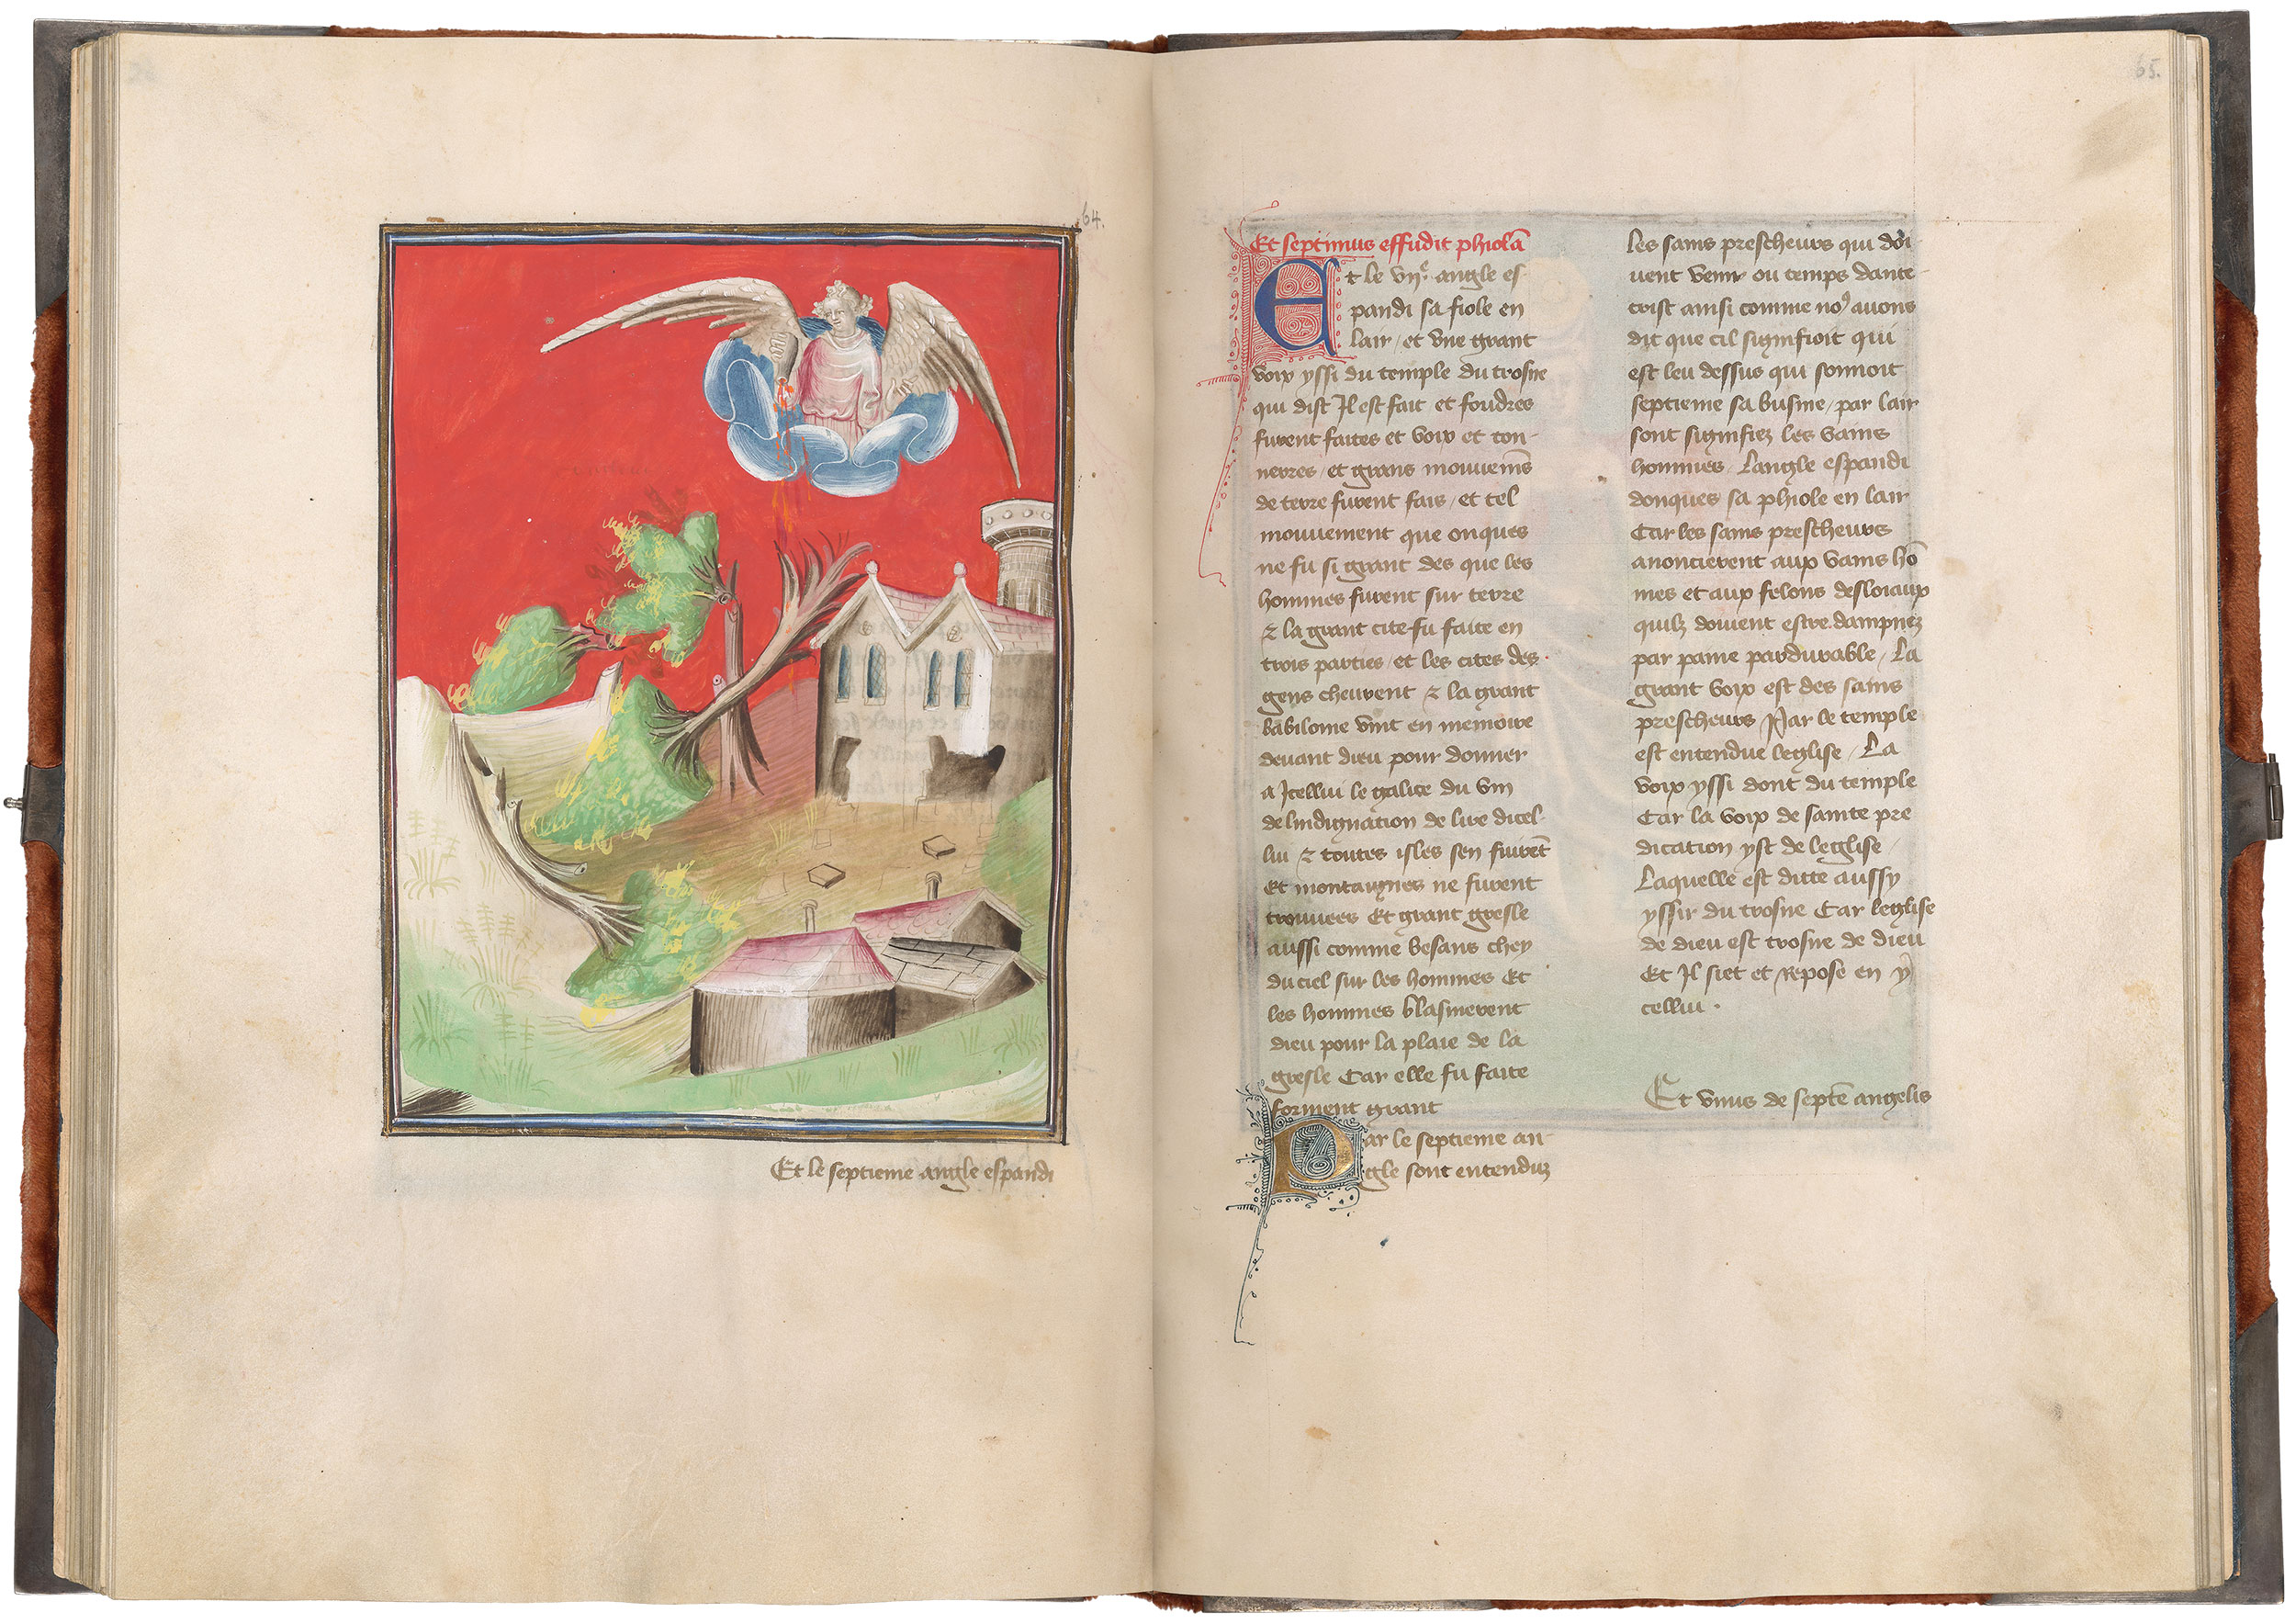 64.
Et le septieme angle espandi
65.
Et septimus effudit phiolā
Et le vijᵉ. angle es-
pandi sa fiole en
lair / et vne grant
voix yssi du temple du trosne
qui dist Il est fait et foudres
furent faites et voix et ton-
nerres / et grans mouuemēs
de terre furent fais / et tel
mouuement que onques
ne fu si grant des que les
hommes furent sur terre
⁊ la grant cite fu faite en
trois parties / et les cites des
gens cheurent ⁊ la grant
babilonie vint en memoire
deuant dieu pour donner
a Icellui le galice du vin
de lindignation de lire dicel-
lui ⁊ toutes isles sen fuirēt
Et montaignes ne furent
trouuees Et grant gresle
aussi comme besans chey
du ciel sur les hommes Et
les hommes blasmerent
dieu pour la plaie de la
gresle Car elle fu faite
forment grant
Par le septieme an-
gle sont entenduz
les sains prescheurs qui doi-
uent venir ou temps dante-
crist ainsi comme noꝯ auons
dit que cil signifioit qui
est leu dessus qui sonnoit
septieme sa busine / par lair
sont signifiez les vains
hommes / Langle espandi
donques sa phiole en lair
Car les sains prescheurs
anoncierent aux vains hō
mes et aux felons desloiaux
quilz doiuent estre dampnez
par paine pardurable / La
grant voix est des sains
prescheurs Par le temple
est entendue leglise / La
voix yssi dont du temple
Car la voix de sainte pre
dication yst de leglise /
Laquelle est ditte aussy
yssir du trosne Car leglise
de dieu est trosne de dieu
Et Il siet et repose en y
cellui .
Et vnus de septē angelis